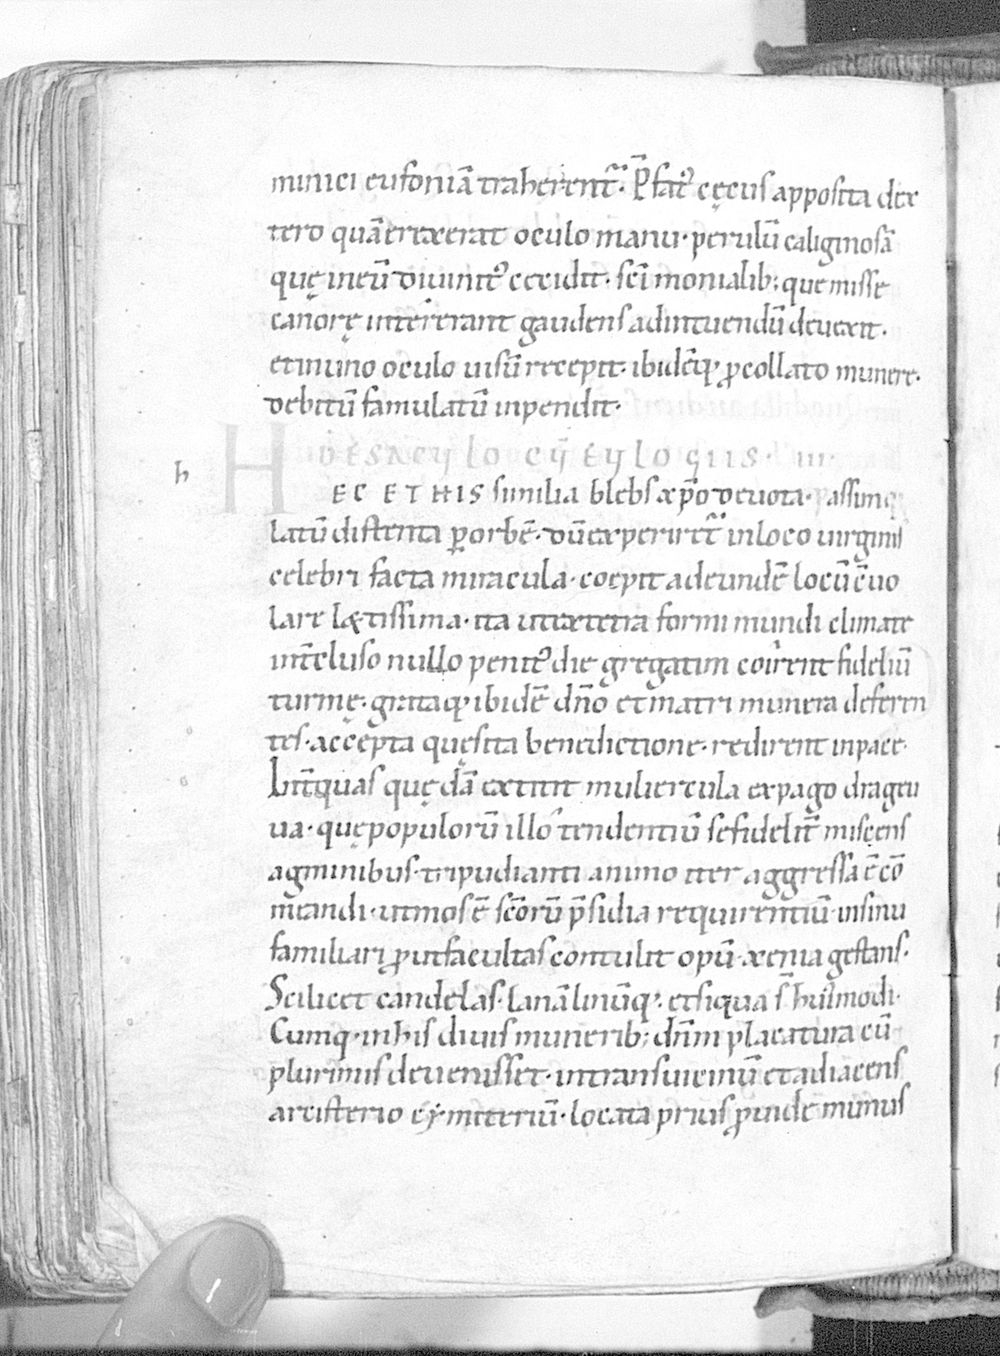 minici eufoniā traherent᷑. P̄fat᷒ cęcus apposita dex
tero quā erexerat oculo manu · perulū caliginosā
quę in eū diuinit᷒ cecidit · sc̄imonialib; que misse
canorę intererant gaudens ad intuendū deuexit ·
et in uno oculo uisū recepit · ibidēq; ꝓ collato munere ·
debitū famulatū inpendit ·
H
DE
CŸ
EYLOGIIS · III ·
h
EC ET HIS similia blebs xp̄o deuota · assim
latū distenta ꝑ orbē · dū experiret᷑ in loco uirginis
celebri facta miracula · coepit ad eundē locū ꝯuo
lare lætissima · ita ut extera formi mundi climate
int̄cluso nullo penit᷒ die gregatim coirent fideliū
turmę · grataq; ibidē dn̄o et matri munera deferen
tes · accepta quęsita benedictione · redirent in pace ·
Int̄ quas quędā extitit muliercula ex pago drageu
ua · quę populorū illo tendentiū se fidelit̄ miscens
agminibus · tripudianti animo iter aggressa ē cō
meandi · ut mos ē sc̄orū p̄sidia requirentiū · in sinu
familiari ꝓut facultas contulit opū · xenia gestans ·
Scilicet candelas · lanā linūq; · et siqua s̄ hui᷒modi ·
Cumq; in his diuis munerib; dn̄m placatura cū
plurimis deuenisset · intrans uicinū et adiacens
arcisterio cẏmiteriū · locata prius ꝓinde munus